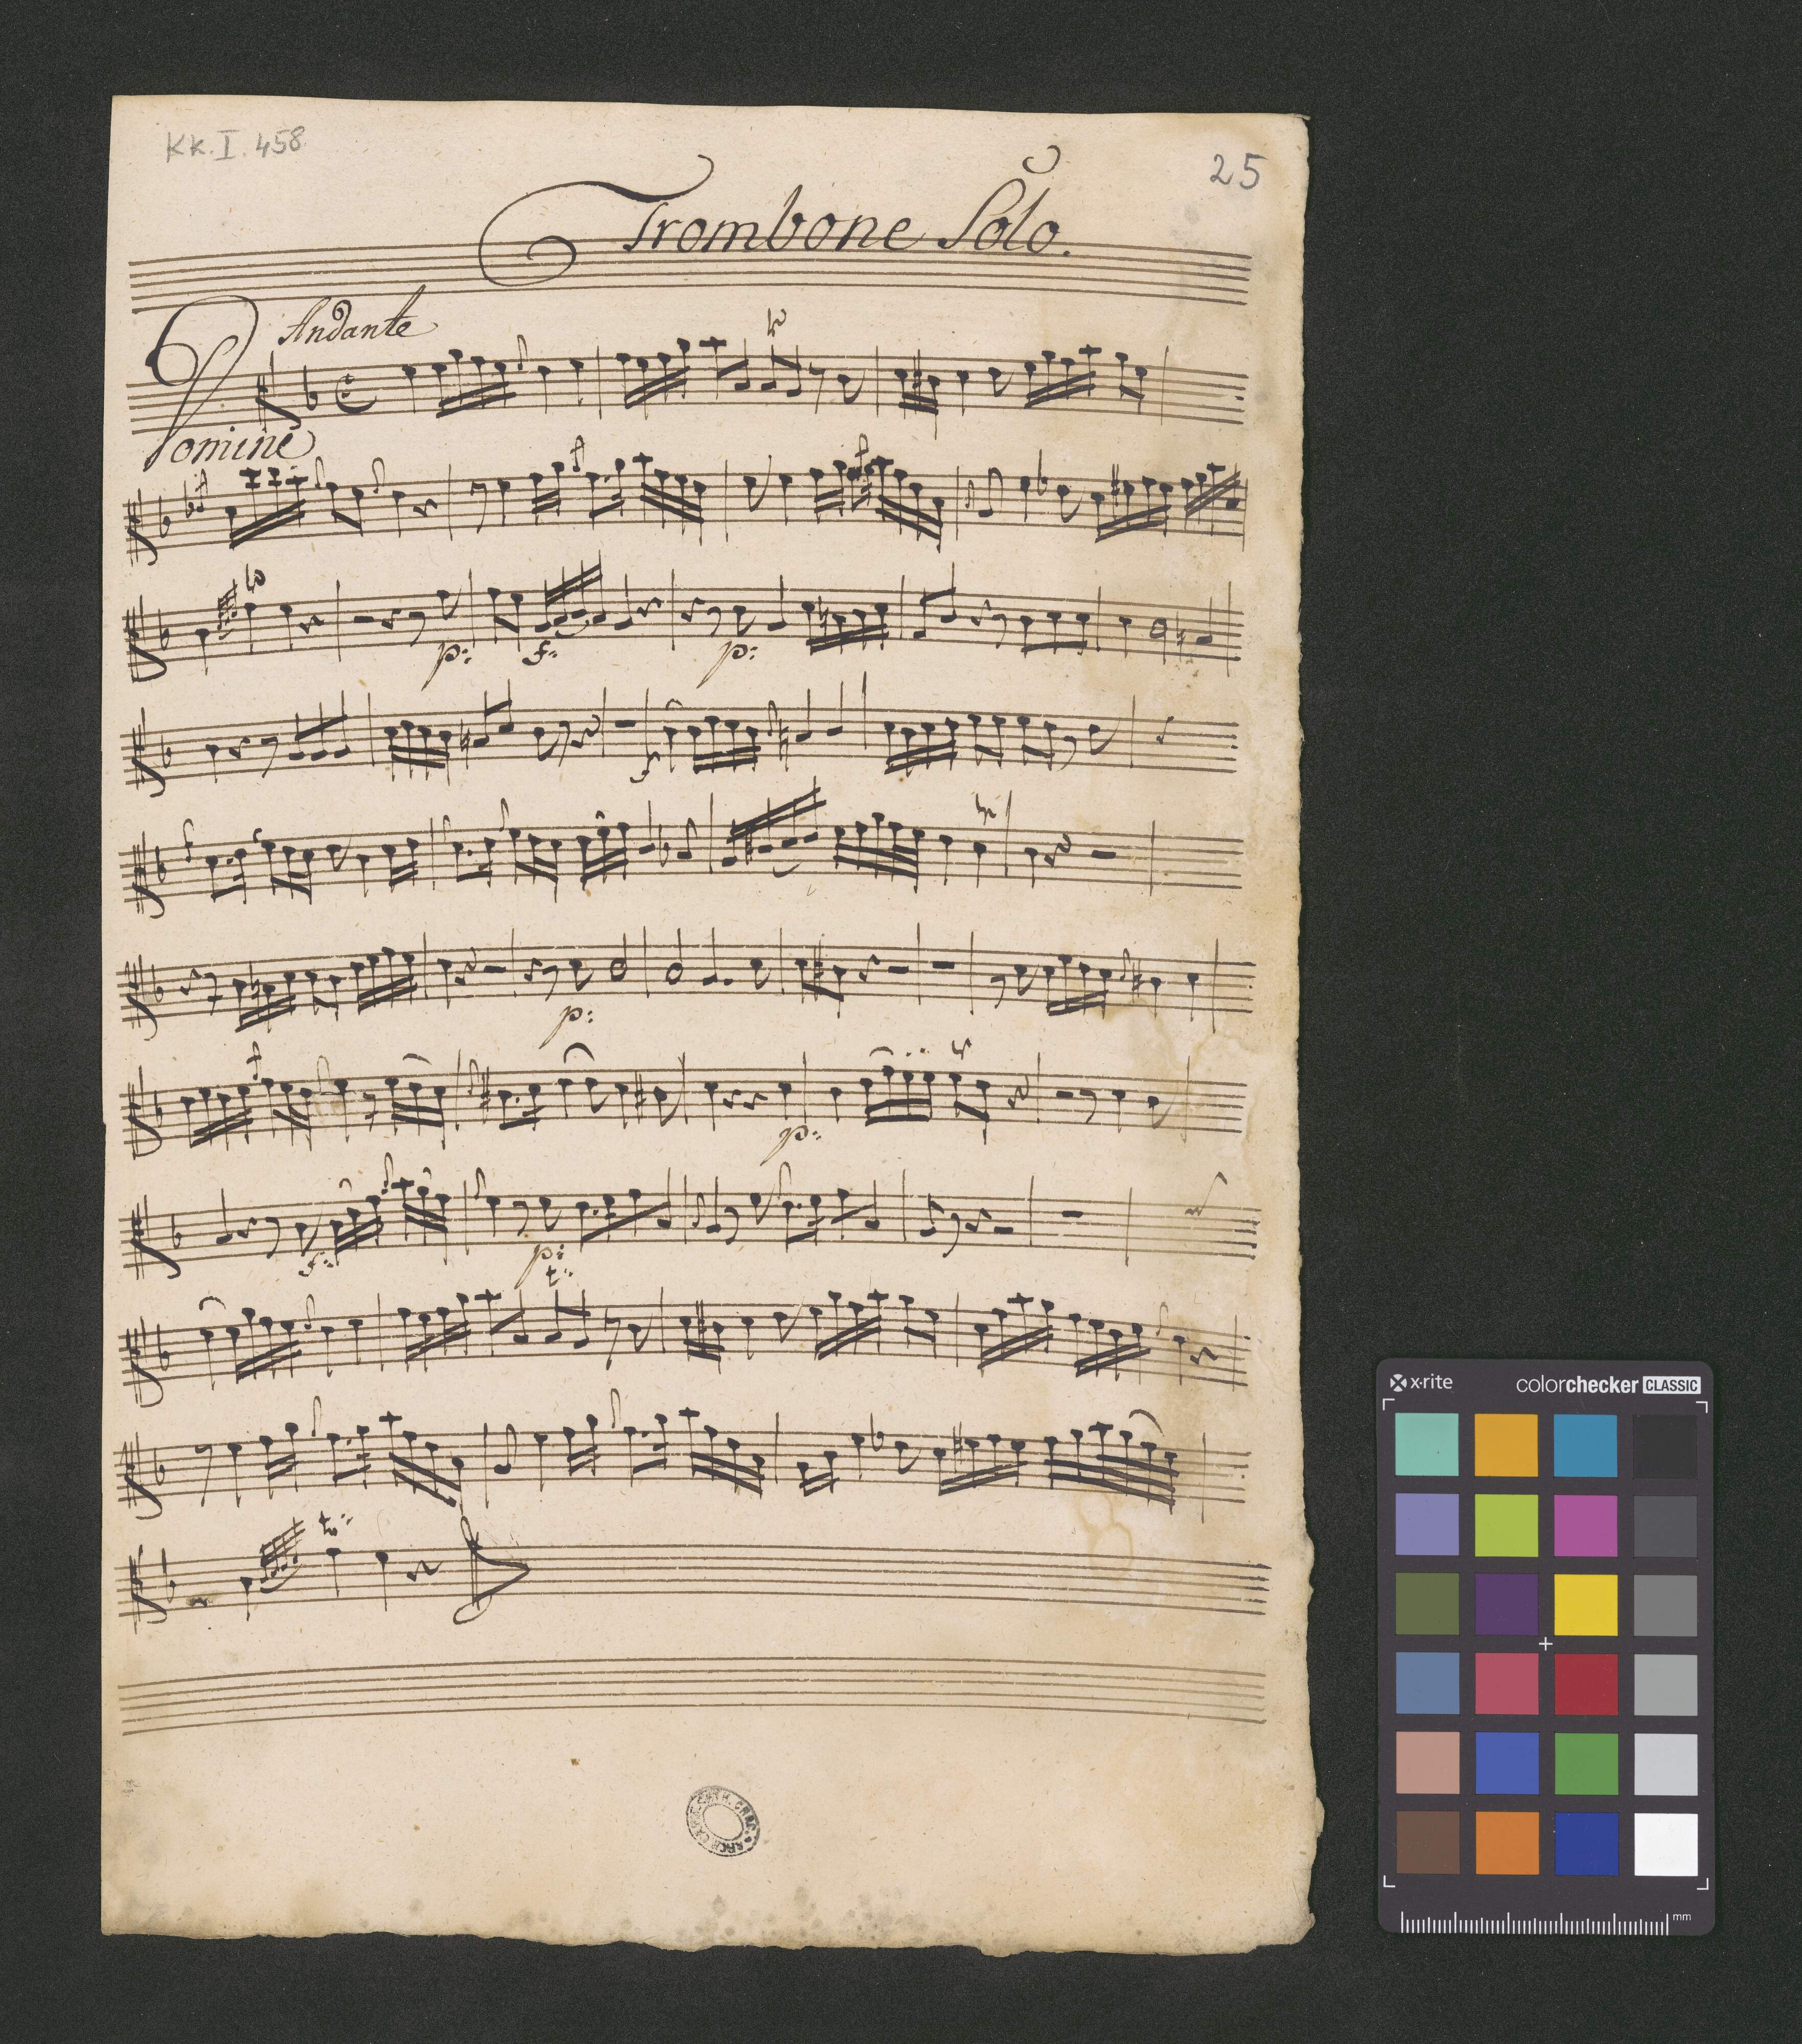 Kk. I. 458
25
Trombone Solo.
Andante
Domine
p: f: p:
f
p:
p:
f: p:
t:
tr:
x·rite colorchecker CLASSIC
mm